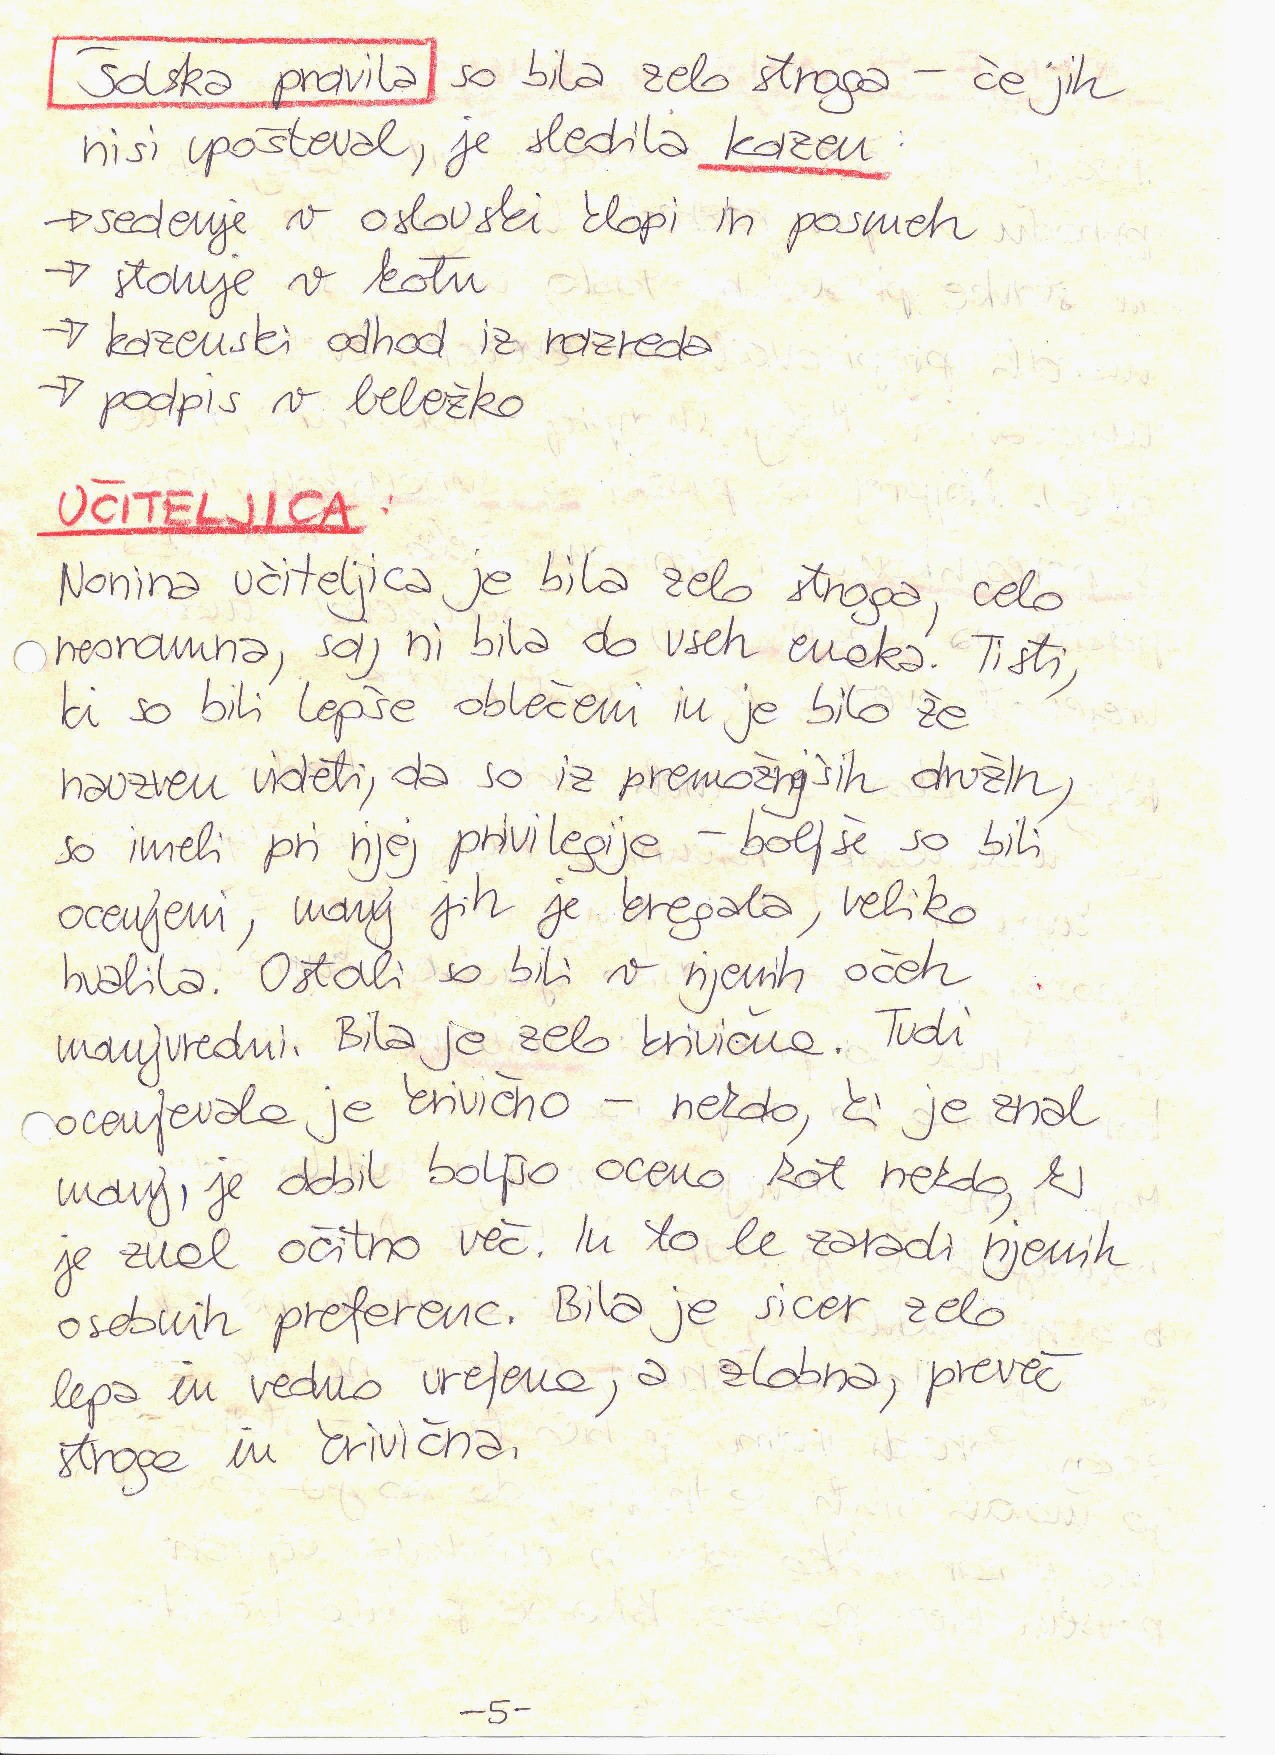 Šolska pravila so bila zelo stroga – če jih
nisi upošteval, je sledila kazen:
→ sedenje v oslovski klopi in posmeh
→ stanje v kotu
→ kazenski odhod iz razreda
→ podpis v beležko
UČITELJICA:
Nonina učiteljica je bila zelo stroga, celo
nesramna, saj ni bila do vseh enaka. Tisti,
ki so bili lepše oblečeni in je bilo že
navzven videti, da so iz premožnejših družin,
so imeli pri njej privilegije – boljše so bili
ocenjeni, manj jih je kregala, veliko
hvalila. Ostali so bili v njenih očeh
manjvredni. Bila je zelo krivična. Tudi
ocenjevala je krivično – nekdo, ki je znal
manj, je dobil boljšo oceno kot nekdo, ki
je znal očitno več. In to le zaradi njenih
osebnih preferenc. Bila je sicer zelo
lepa in vedno urejena, a zlobna, preveč
stroga in krivična.
-5-